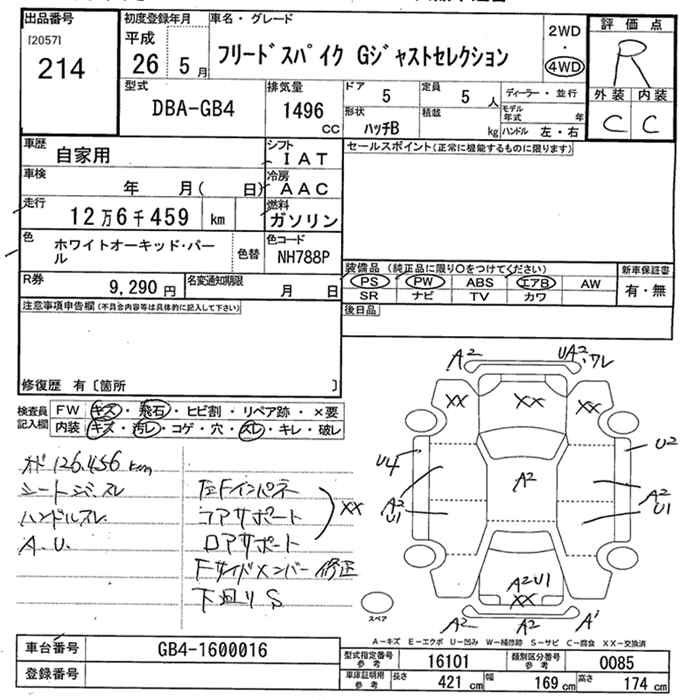 出品番号
[2057]
214
初度登録年月
平成
26 5月
車名・グレード
フリードスパイク Gジャストセレクション
2WD
・
4WD
評価点
R
外装 内装
C C
型式
DBA-GB4
排気量
1496
CC
ドア
5
定員
5人
形状
ハッチB
積載
kg
ディーラー・並行
モデル年式 年
ハンドル 左・右
車歴
自家用
シフト
IAT
車検
年 月( 日)
冷房
AAC
走行
12万6千459 km
燃料
ガソリン
色
ホワイトオーキッド・パール
色替
色コード
NH788P
R券
9,290円
名変通知期限
月 日
セールスポイント(正常に機能するものに限ります)
装備品(純正品に限り○をつけてください)
PS PW ABS エアB AW
SR ナビ TV カワ
新車保証書
有・無
後日品
注意事項申告欄(不具合内容等は具体的に記入して下さい)
修復歴 有〔箇所 〕
検査員記入欄
FW キズ・飛石・ヒビ割・リペア跡・×要
内装 キズ・汚レ・コゲ・穴・スレ・キレ・破レ
オド 126.456 km
シートシミ.スレ
ハンドルスレ
A.U.
左Fインパネ
コアサポート
ロアサポート
XX
Fサイドメンバー 修正
下廻り S
A2
UA2・ワレ
XX
XX
XX
U4
U2
A2
A2
U1
A2
U1
A2U1
XX
A2
A2
A1
スペア
A-キズ E-エクボ U-凹み W-補修跡 S-サビ C-腐食 XX-交換済
車台番号
GB4-1600016
登録番号
型式指定番号
参考
16101
類別区分番号
参考
0085
車庫証明用
参考
長さ
421 cm
幅
169 cm
高さ
174 cm